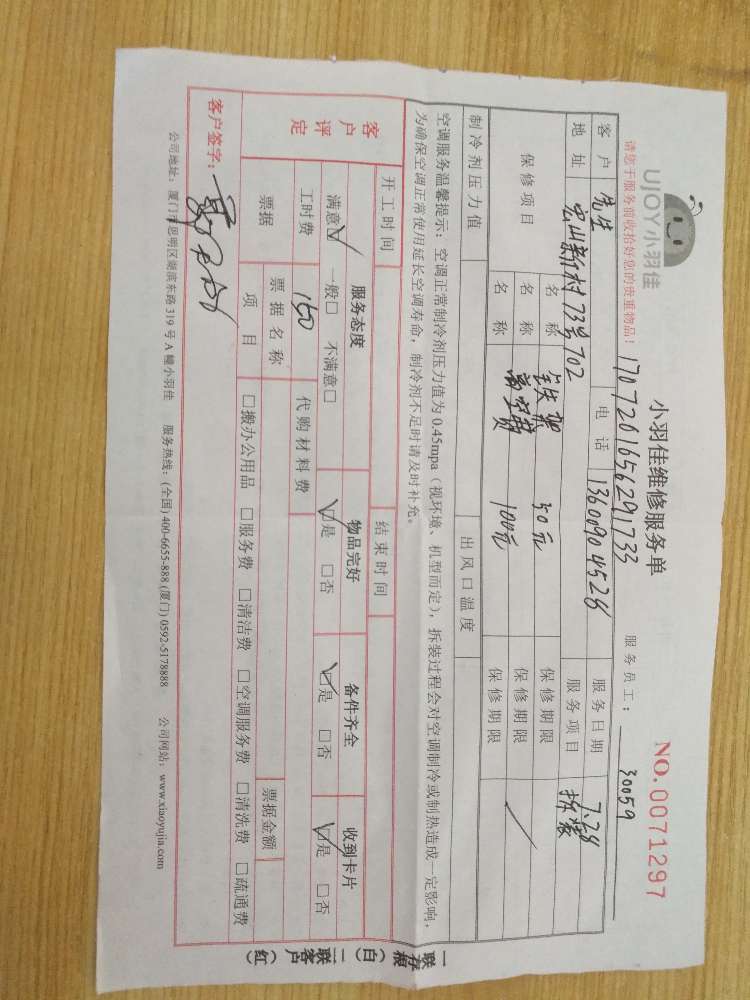 UJOY小羽佳
小羽佳维修服务单
NO.0071297
请您于服务前收拾好您的贵重物品！
1707201656291733
服务员工：
30059
客户 先生 电话 13600904528 服务日期 7.28
地址 宏山新村73号702 服务项目 拆装
保修项目 名称 铁架 50元 保修期限
名称 高空费 100元 保修期限
名称 保修期限
制冷剂压力值 出风口温度
空调服务温馨提示：空调正常制冷剂压力值为0.45mpa（视环境、机型而定），拆装过程会对空调制冷或制热造成一定影响，
为确保空调正常使用延长空调寿命，制冷剂不足时请及时补充。
开工时间 结束时间
客户评定 服务态度 物品完好 备件齐全 收到卡片
满意☑ 一般□ 不满意□ ☑是 □否 ☑是 □否 ☑是 □否
工时费 150 代购材料费
票据 票据名称 票据金额
项目 □搬办公用品 □服务费 □清洁费 □空调服务费 □清洗费 □疏通费
客户签字：
公司地址：厦门市思明区湖滨东路319号A幢小羽佳 服务热线：(全国)400-6655-888 (厦门) 0592-5178888 公司网站：www.xiaoyujia.com
一联存根（白） 二联客户（红）